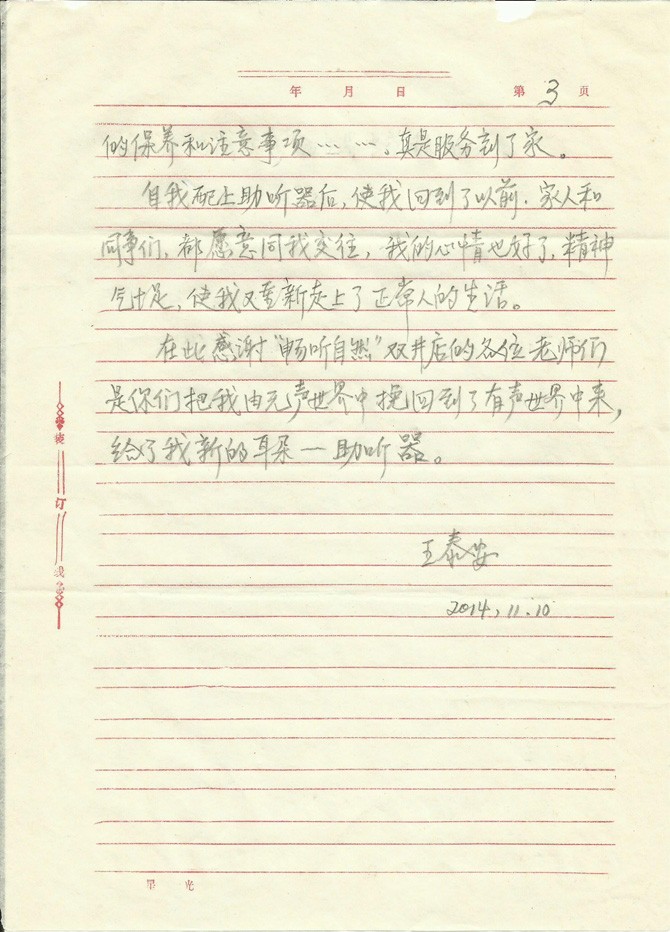 年 月 日 第 3 页
的保养和注意事项……。真是服务到了家。
自我配上助听器后，使我回到了以前．家人和
同事们，都愿意同我交往，我的心情也好了，精神
气十足，使我又重新走上了正常人的生活。
在此感谢“畅听自然”双井店的各位老师们
是你们把我由无声世界中挽回到了有声世界中来，
给了我新的耳朵—助听器。
王泰安
2014,11.10
装
订
线